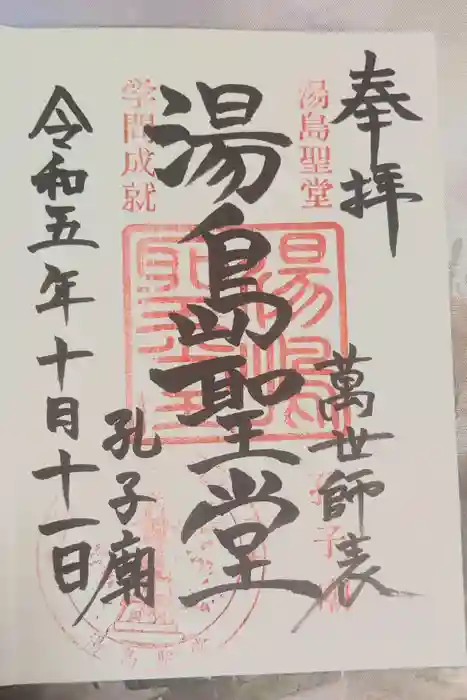 奉拝
萬世師表
湯島聖堂
湯島聖堂
学問成就
孔子廟
令和五年十月十一日